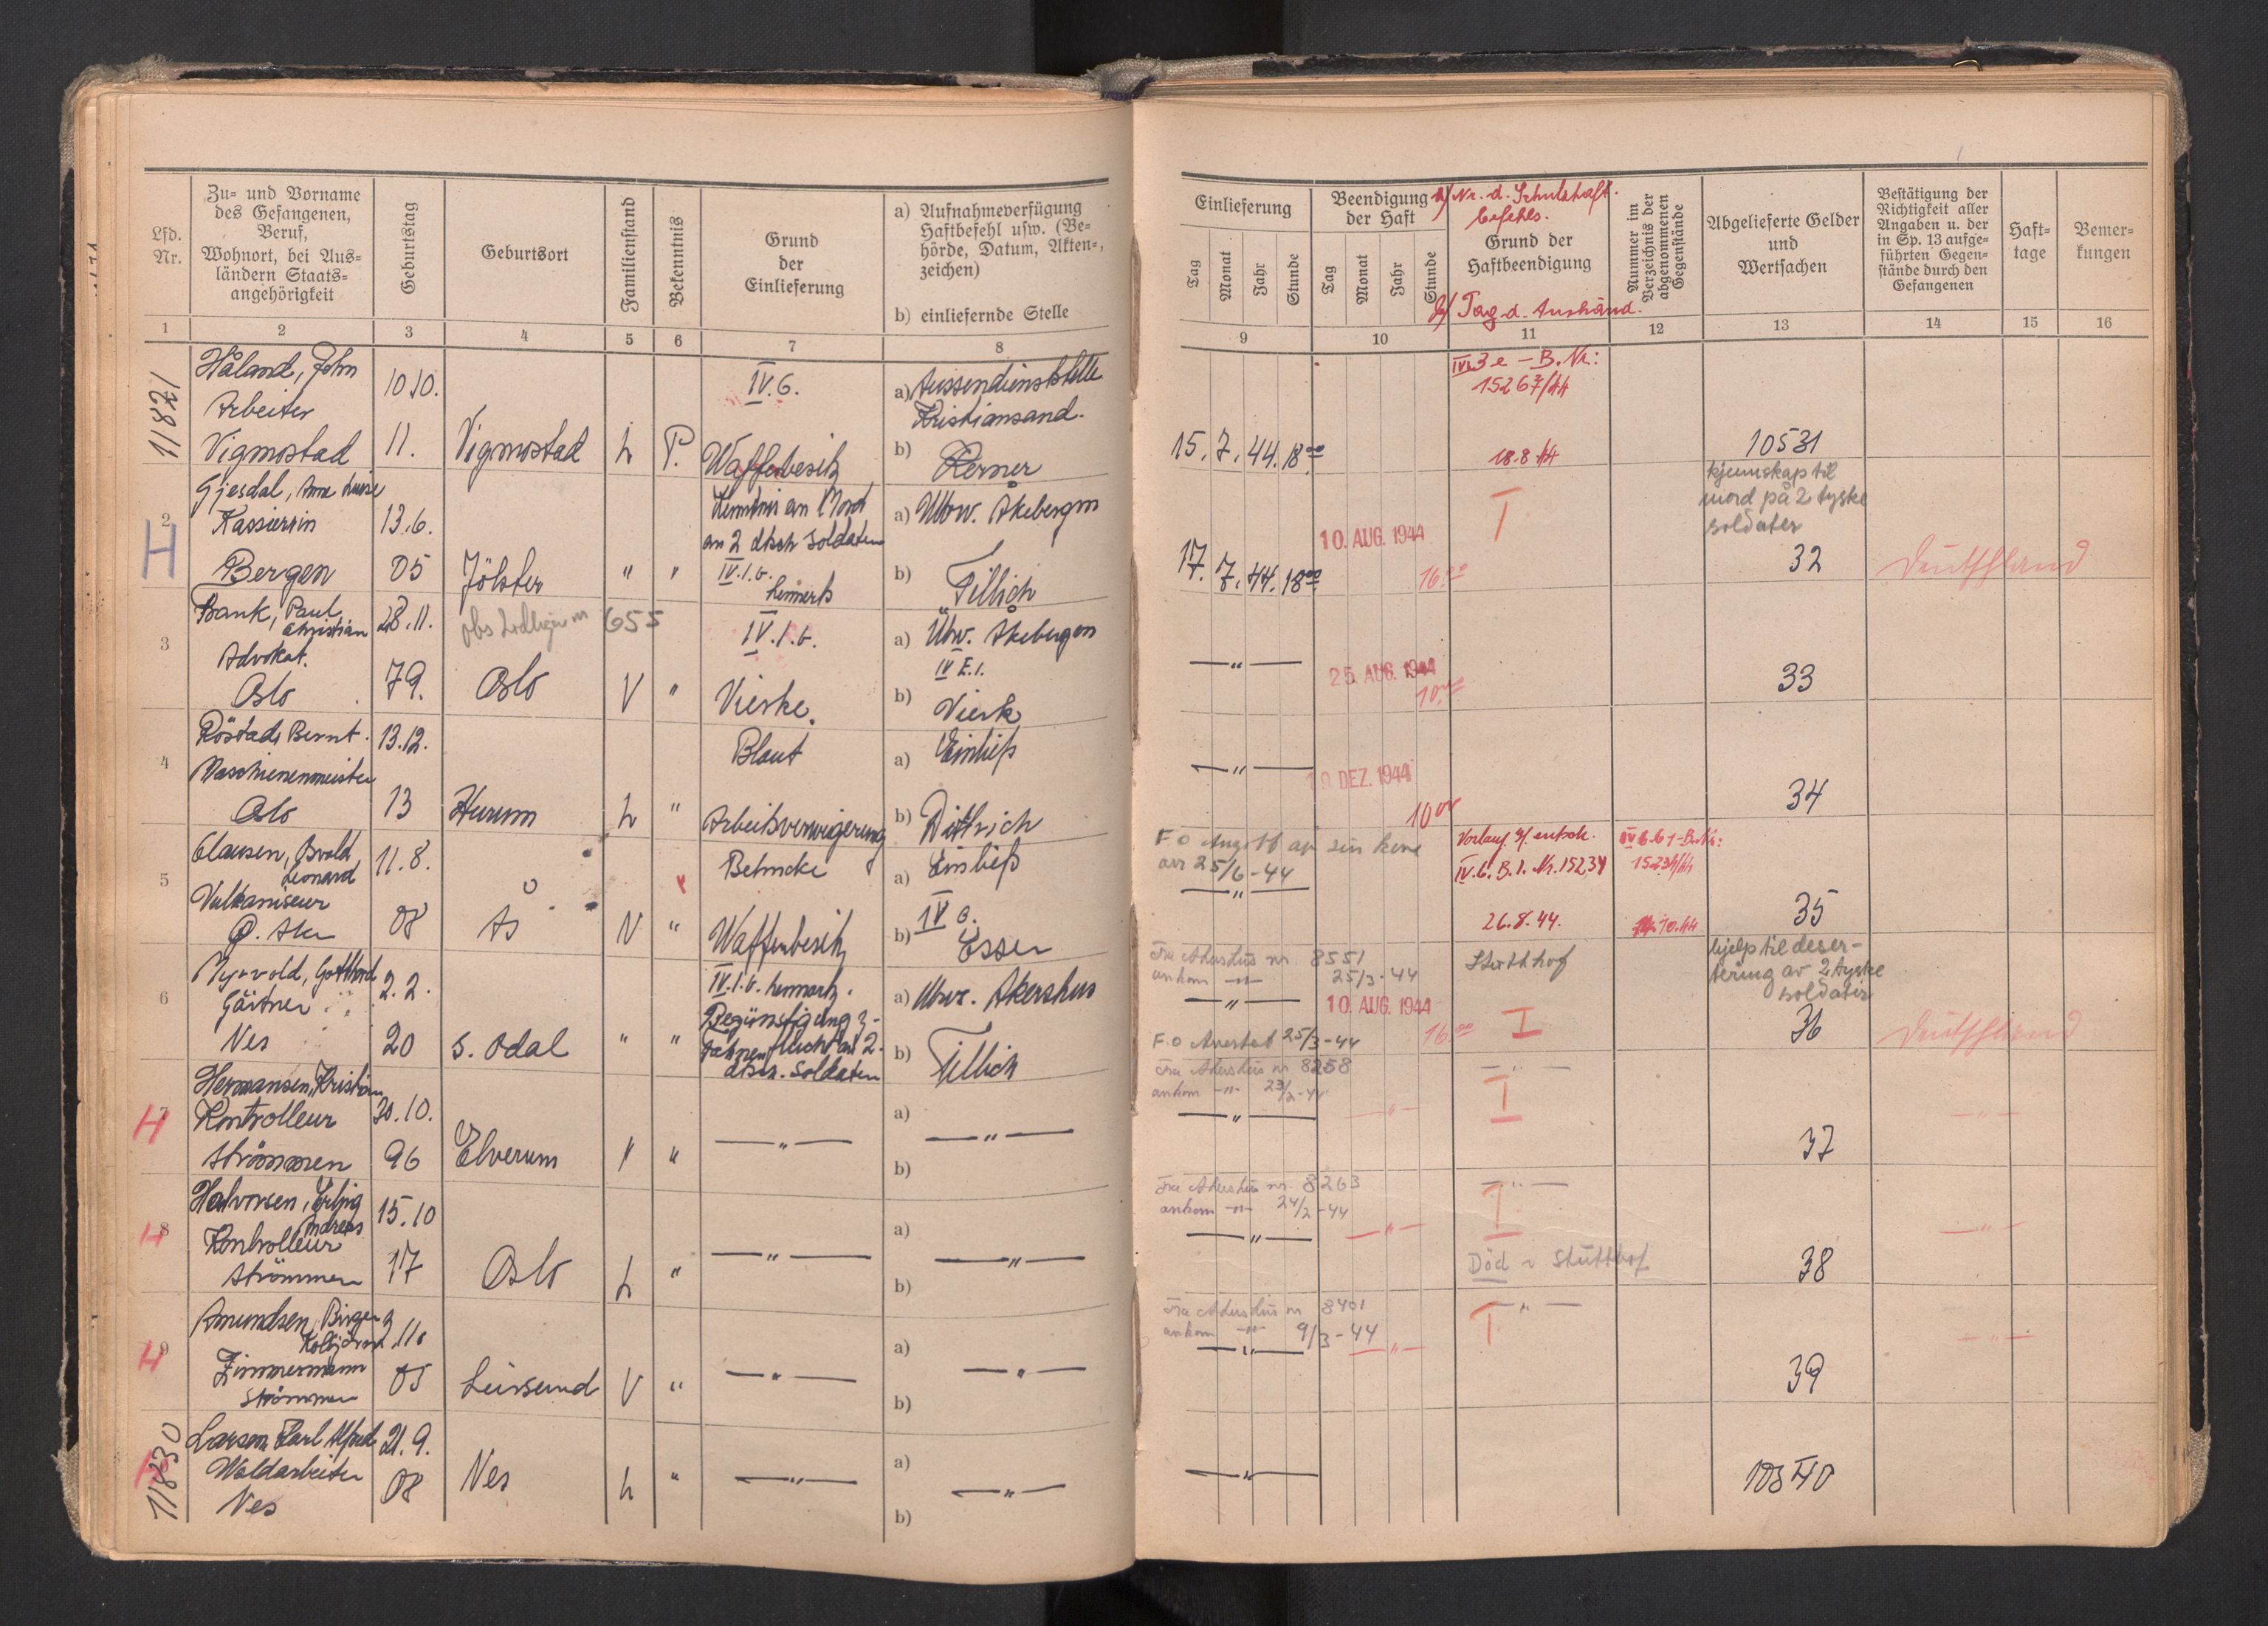 Lfd. Nr.
Zu- und Vorname
des Gefangenen,
Beruf,
Wohnort, bei Aus-
ländern Staats-
angehörigkeit
Geburtstag
Geburtsort
Familienstand
Bekenntnis
Grund
der
Einlieferung
a) Aufnahmeverfügung
Haftbefehl usw. (Be-
hörde, Datum, Akten-,
zeichen)
b) einliefernde Stelle
1 2 3 4 5 6 7 8
11821
Håland, John
Arbeiter
Vigmostad
10.10.
11.
Vigmostad
L
P.
IV.6.
Waffenbesitz
a) Aussendienststelle
Kristiansand.
b) Kerner
2
H
Gjesdal, Anne Luise
Kassierin
Bergen
13.6.
05
Jölster
" "
Kenntnis am Mord
an 2 dtsch Soldaten
IV.1.b.
a) Übw. Akebergn
b) Fillich
3
Bank, Paul
Christian
Advokat.
Oslo
28.11.
79.
655
Oslo
V "
IV.1.b.
Vierke.
a) Übw. Akebergn
IV E.1.
b) Vierk
4
Röstad, Bernt.
Maschienenmeister
Oslo
13.12.
13
Hurum
L "
Blaut
Arbeitsverweigerung
a) Einließ
b) Dittrich
5
Clausen, Osvald
Leonard
Vulkaniseur
Ø. Aker
11.8.
08
Ås
V "
Behncke
Waffenbesitz
a) Einließ
b) IV 6.
Esser
6
Myrvold, Gotthard
Gärtner
Ves
2.2.
20
S. Odal
" "
IV.1.b.
Begünstigung z-
Fahnenflucht an 2.
dtsch. Soldaten
a) Übw. Akershus
b) Fillich
7
H
Hermansen, Kristian
Kontrolleur
Strömmen
30.10.
96
Elverum
" "
— " —
a) — " —
b)
8
H
Halvorsen, Erling
Andreas
Kontrolleur
Strömmen
15.10
17
Oslo
L "
— " —
a)
— " —
b)
9
H
Amundsen, Birger
Kolbjörn
Zimmermann
Strömmen
9.11.
05
Leirsund
V "
— " —
a)
— " —
b)
11830
H
Larsen, Karl Alfred
Waldarbeiter
Nes
21.9.
08
Nes
L "
— " —
a)
— " —
b)
Einlieferung
Tag Monat Jahr Stunde
Beendigung
der Haft
Tag Monat Jahr Stunde
a) Nr. d. Schutzhaft.
befehls.
Grund der
Haftbeendigung
b) Tag d. Aushänd.
Nummer im
Verzeichnis der
abgenommenen
Gegenstände
Abgelieferte Gelder
und
Wertsachen
Bestätigung der
Richtigkeit aller
Angaben u. der
in Sp. 13 aufge-
führten Gegen-
stände durch den
Gefangenen
Haft-
tage
Bemer-
kungen
9 10 11 12 13 14 15 16
IV 3 e – B. Nr:
15267/44
15.7.44.18⁰⁰
18.8.44
10531
kjennskap til
mord på 2 tyske
soldater
17.7.44.18⁰⁰
10. AUG. 1944
16⁰⁰
I
32
Deutschland
— " —
25. AUG. 1944
10⁰⁰
33
— " —
19 DEZ. 1944
10⁰⁰
34
F.O
25/6 - 44
— " —
IV.6.B.1. Nr. 15234
26.8.44.
15234/44
35
Fra Akershus nr. 8551
ankom — " — 25/3-44
— " —
10. AUG. 1944
16⁰⁰
F.O Arrestert 25/3-44
Stutthof
I
hjelp til deser-
tering av 2 tyske
soldater
36
Deutschland
Fra Akershus nr 8258
ankom — " — 23/2-44
— " —
— " —
— " —
I
37
— " —
Fra Akershus nr. 8263
ankom — " — 24/2-44
— " —
— " —
— " —
I
Död i Stutthof
38
— " —
Fra Akershus nr 8401
ankom — " — 9/3-44
— " —
— " —
— " —
I
39
— " —
— " —
10540